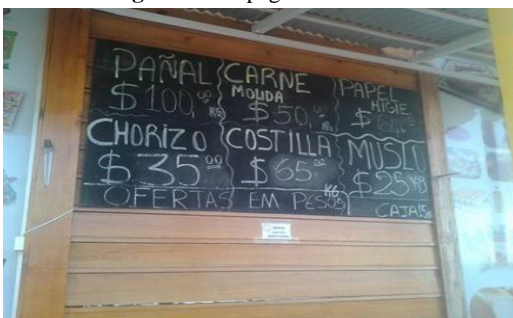 PAÑAL
$100,00 KG
CARNE
MOLIDA
$50,00 KG
PAPEL
HIGIE
$
CHORIZO
$35 00
COSTILLA
$65 00 KG
MUSLO
$25 KG
OFERTAS EM PESOS
CAJA 15